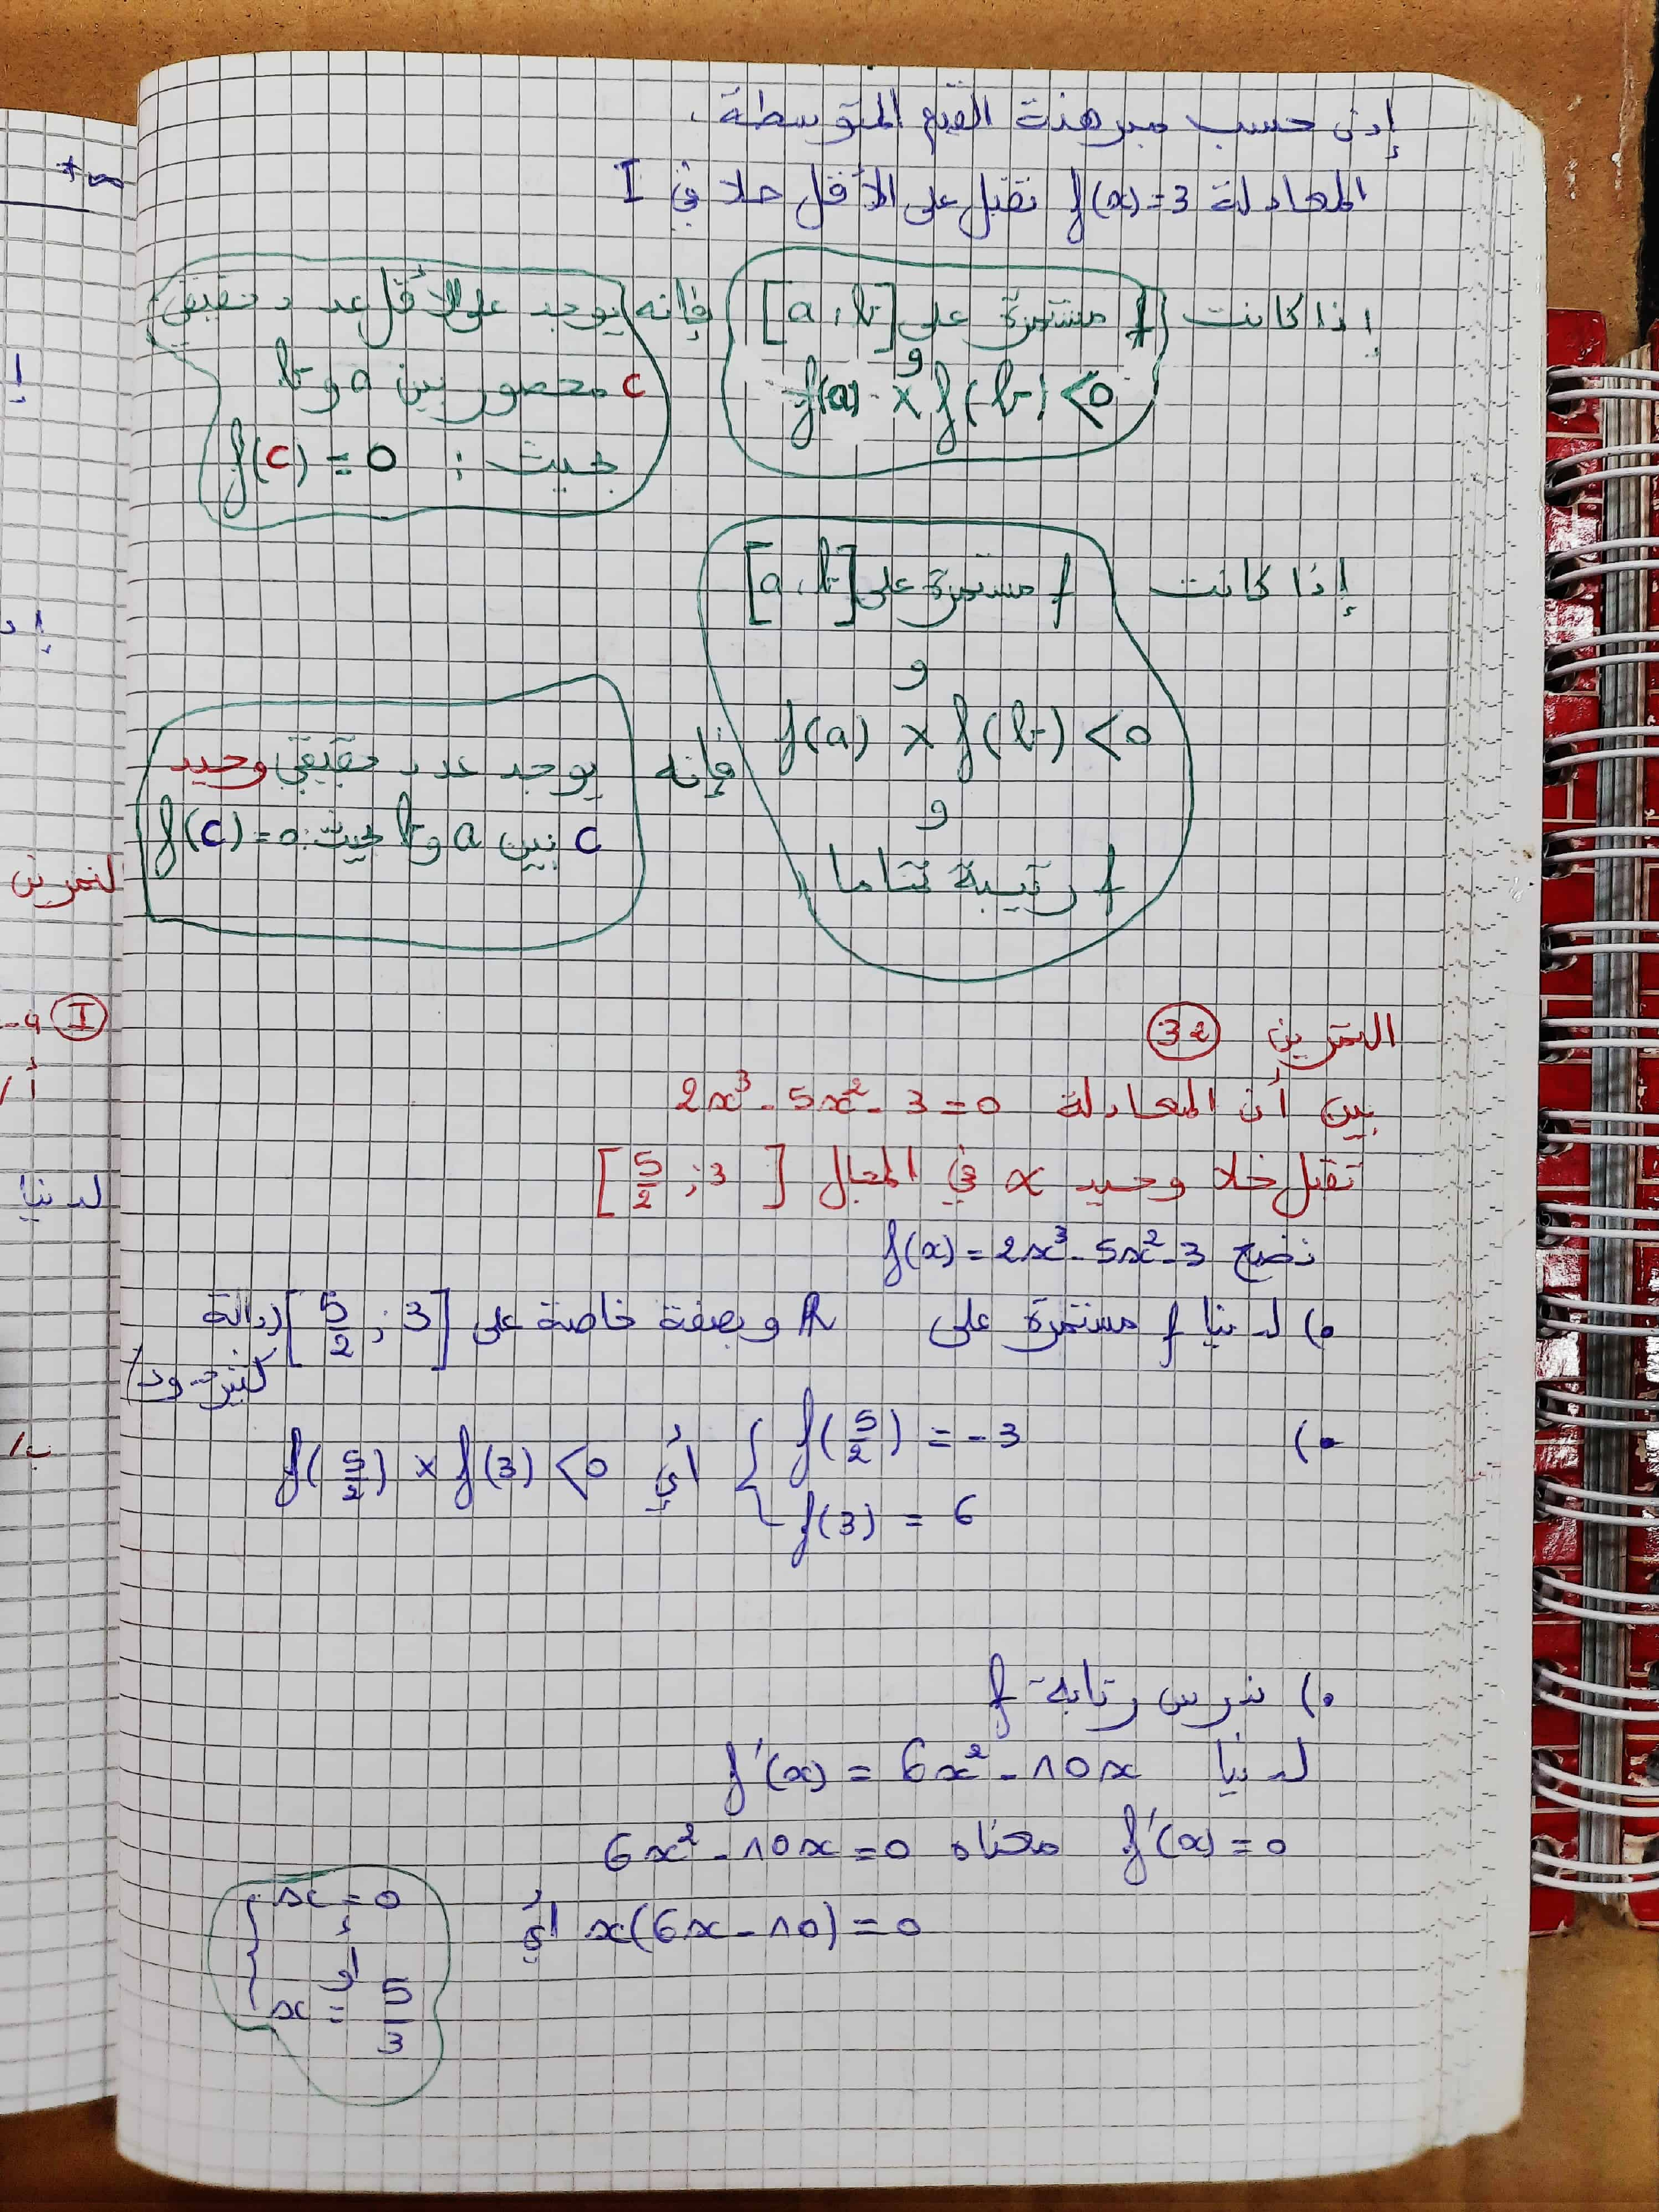 إذن حسب مبرهنة القيم المتوسطة،
المعادلة f(x)=3 تقبل على الأقل حلا في I
إذا كانت f مستمرة على [a , b] فإنه يوجد على الأقل عدد حقيقي
و
f(a) × f(b) < 0
c محصور بين a و b
بحيث : f(c) = 0
إذا كانت f مستمرة على [a , b]
و
f(a) × f(b) < 0
و
f رتيبة تماما
فإنه يوجد عدد حقيقي وحيد
c بين a و b بحيث: f(c)=0
التمرين 32
بين أن المعادلة 2x³ - 5x² - 3 = 0
تقبل حلا وحيد α في المجال [5/2 ; 3]
نضع f(x) = 2x³ - 5x² - 3
•) لدينا f مستمرة على ℝ وبصفة خاصة على [5/2 ; 3] (دالة
كثير حدود)
•) { f(5/2) = -3
f(3) = 6
أي f(5/2) × f(3) < 0
•) ندرس رتابة f
لدينا f'(x) = 6x² - 10x
f'(x) = 0 معناه 6x² - 10x = 0
x(6x - 10) = 0 أي { x = 0
أو
x = 5/3
+∞
إ
إذ
لتمرين
I
أ/
لدينا
ب/